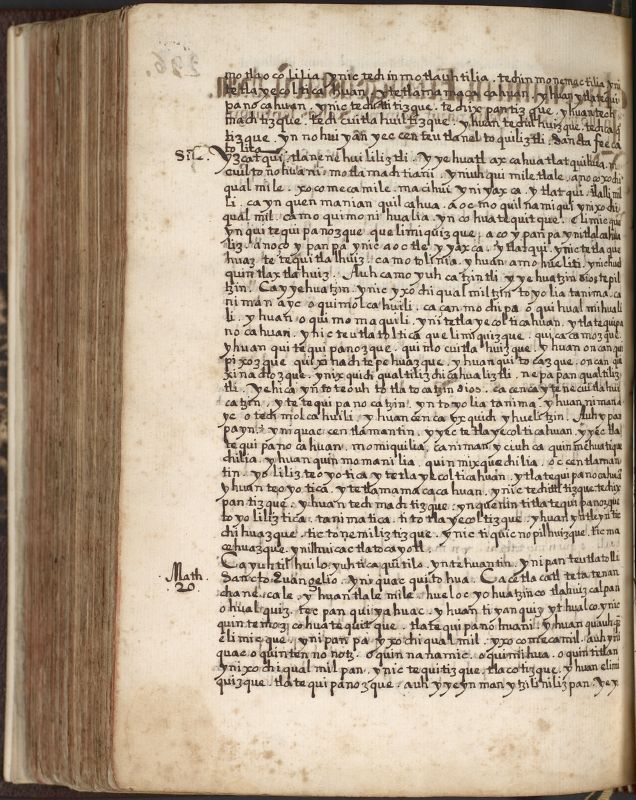 motlaocolilia. ynic techinmotlauhtilia. techinmonemactilia yni
tetlayecolticahuan. ytetlamamacacahuan. yhuan ytlatequi
panocahuan. ynic techititizque. techixpantizque. yhuan tech
machtizque. techcuitlahuiltizque. yhuan techilhuizque. techcaq
tizque. yn nohuiyan yec centeutlaneltoquiliztli. Sancta feeca
tolica
Sil. Yzcatqui. tlanenehuililiztli. Yyehuatl axcahua tlatquihua. yn
cuiltonohuani. motlamachtiani. yniuhqui mile tlale. anoço xochi
qual mile. xocomecamile. macihui yniyaxca. ytlatqui. tlallimil
li. ca yn quenmanian quilcahua. aocmo quilnamiqui ynixochi
qual mil. camo quimonihualia. yn cohuatequitque. elimicque
yn quitequipanozque. quelimiquizque. aço ypanpa ynitlalcahua
liz. anoço ypanpa ynic aoctle yyaxca. ytlatqui. ynic tetlaque
huaz. tetequitlalhuiz. camo tolinia. yhuan amo hueliti. ynic hue
quintlaxtlahuiz. Auh camo yuhcatzintli yyehuatzin dios tepil
tzin. Ca yyehuatzin. ynic yxochiqualmiltzin toyolia tanima. ca
niman ayc oquimolcahuili. ca çan mochipa oquihualmihuali
li. yhuan oquimomaquili. yni tetlayecolticahuan. ytlatequipa
nocahuan. ynic teutlatoltica quelimiquizque. quiçacamozque.
yhuan quitequipanozque. quimocuitlahuizque. yhuan oncan qui
pixozque quixinachtepehuazque. yhuan quitocazque. oncan qui
xinachozque. ynixquich qualtilizchicahualiztli. nepapan qualtiliz
tli. Yehica yn toteouh totlatocatzin dios. ca cenca ytenecuitlahuil
catzin. ytetequipanocatzin. yn toyolia tanima yhuan nimana
yc otechmolcahuili. yhuan cenca yxquich yhuelitzin. Auh ypan
pa yn. yniquac centlamantin. yyectetlayecolticahuan. yyectla
tequipanocahuan. momiquilia. ca niman yciuhca quinmehuatique
chilia. yhuan quinmomanilia. quinmixquechilia. occentlaman
tin. yoliliz teoyotica ytetlayecolticahuan. ytlatequipanocahuan
yhuan teoyotica. ytetlamamacacahuan. ynic techititizque. techix
pantizque. yhuan techmachtizque. ynquenin titlatequipanozque
toyoliliztica. tanimatica. titotlayecoltizque. yhuan ytlteyntic
chihuazque. tictonemiliztizque. ynic tiquicnopilhuizque. ticma
cehuazque. ynilhuicac tlatocayotl.
Math. 20 Ca yuhtilhuilo. yuhticaquitila. yntehuantin. ynipan teutlatolli
Sancto Euangelio. yniquac quitohua. Ca cetlacatl teta tenan
chane. cale. yhuan tlale mile. hueloc yohuatzinco tlahuizcalpan
ohualquiz. tecpan quiyahuac. yhuan tiyanquiz ythualco. ynic
quintemoz cohuatequitque. tlatequipanohuani. yhuan quauhqui
elimicque. ynipanpa yxochiqualmil. yxocomecamil. auh yni
quac oquinten nonotz. oquinnahamic. oquimihua. oquintitlan
ynixochiqualmilpan. ynic tequitizque. tlacotizque. yhuan elimi
quizque. tlatequipanozque. auh yyeyn manytziliniliz pan. yey